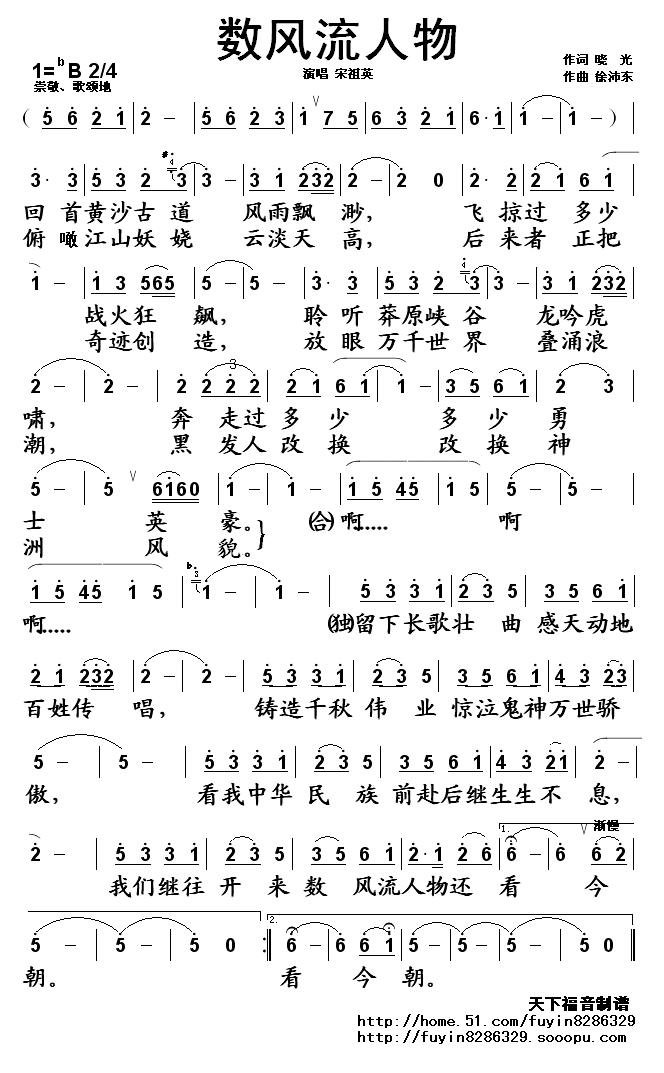 数风流人物
1=ᵇB 2/4
崇敬、歌颂地
演唱 宋祖英
作词 晓 光
作曲 徐沛东
( 5 6 2 1 | 2 – | 5 6 2 3 | 1 7 5 | 6 3 2 1 | 6· 1 | 1 – | 1 – )
3· 3 | 5 3 2 3 | 3 – | 3 1 2 3 2 | 2 – | 2 0 | 2· 2 | 2 1 6 1
回 首黄沙古 道 风雨飘 渺， 飞 掠过 多少
俯 瞰江山妖 娆 云淡天 高， 后 来者 正把
1 – | 1 3 5 6 5 | 5 – | 5 – | 3· 3 | 5 3 2 3 | 3 – | 3 1 2 3 2
战火狂 飙， 聆 听 莽原峡 谷 龙吟虎
奇迹创 造， 放 眼 万千世 界 叠涌浪
2 – | 2 – | 2 2 2 2 | 2 1 6 1 | 1 – | 3 5 6 1 | 2 3
3
啸， 奔 走过 多 少 多 少 勇
潮， 黑 发人 改 换 改 换 神
5 – | 5 | 6 1 6 0 | 1 – | 1 – | 1 5 4 5 | 1 5 | 5 – | 5 –
士 英 豪。 (合) 啊..... 啊
洲 风 貌。
1 5 4 5 | 1 5 | 1 – | 1 – | 5 3 3 1 | 2 3 5 | 3 5 6 1
啊..... (独)留下长歌壮 曲 感天动地
2 1 2 3 2 | 2 – | 2 – | 5 3 3 1 | 2 3 5 | 3 5 6 1 | 2 3 1 6
百姓传 唱， 铸造千秋 伟 业 惊泣鬼神万世骄
5 – | 5 – | 5 3 3 1 | 2 3 5 | 3 5 6 1 | 4 3 2 1 | 2 –
傲， 看我中华 民 族 前赴后继生生不 息，
1. 渐慢
2 – | 5 3 3 1 | 2 3 5 | 3 5 6 1 | 2· 1 2 6 | 6 – | 6 6 2
我们继往 开 来数 风流人物还 看 今
2.
5 – | 5 – | 5 – | 5 0 :| 6 – | 6 6 1 | 5 – | 5 – | 5 – | 5 0
朝。 看 今 朝。
天下福音制谱
http://home.51.com/fuyin8286329
http://fuyin8286329.sooopu.com